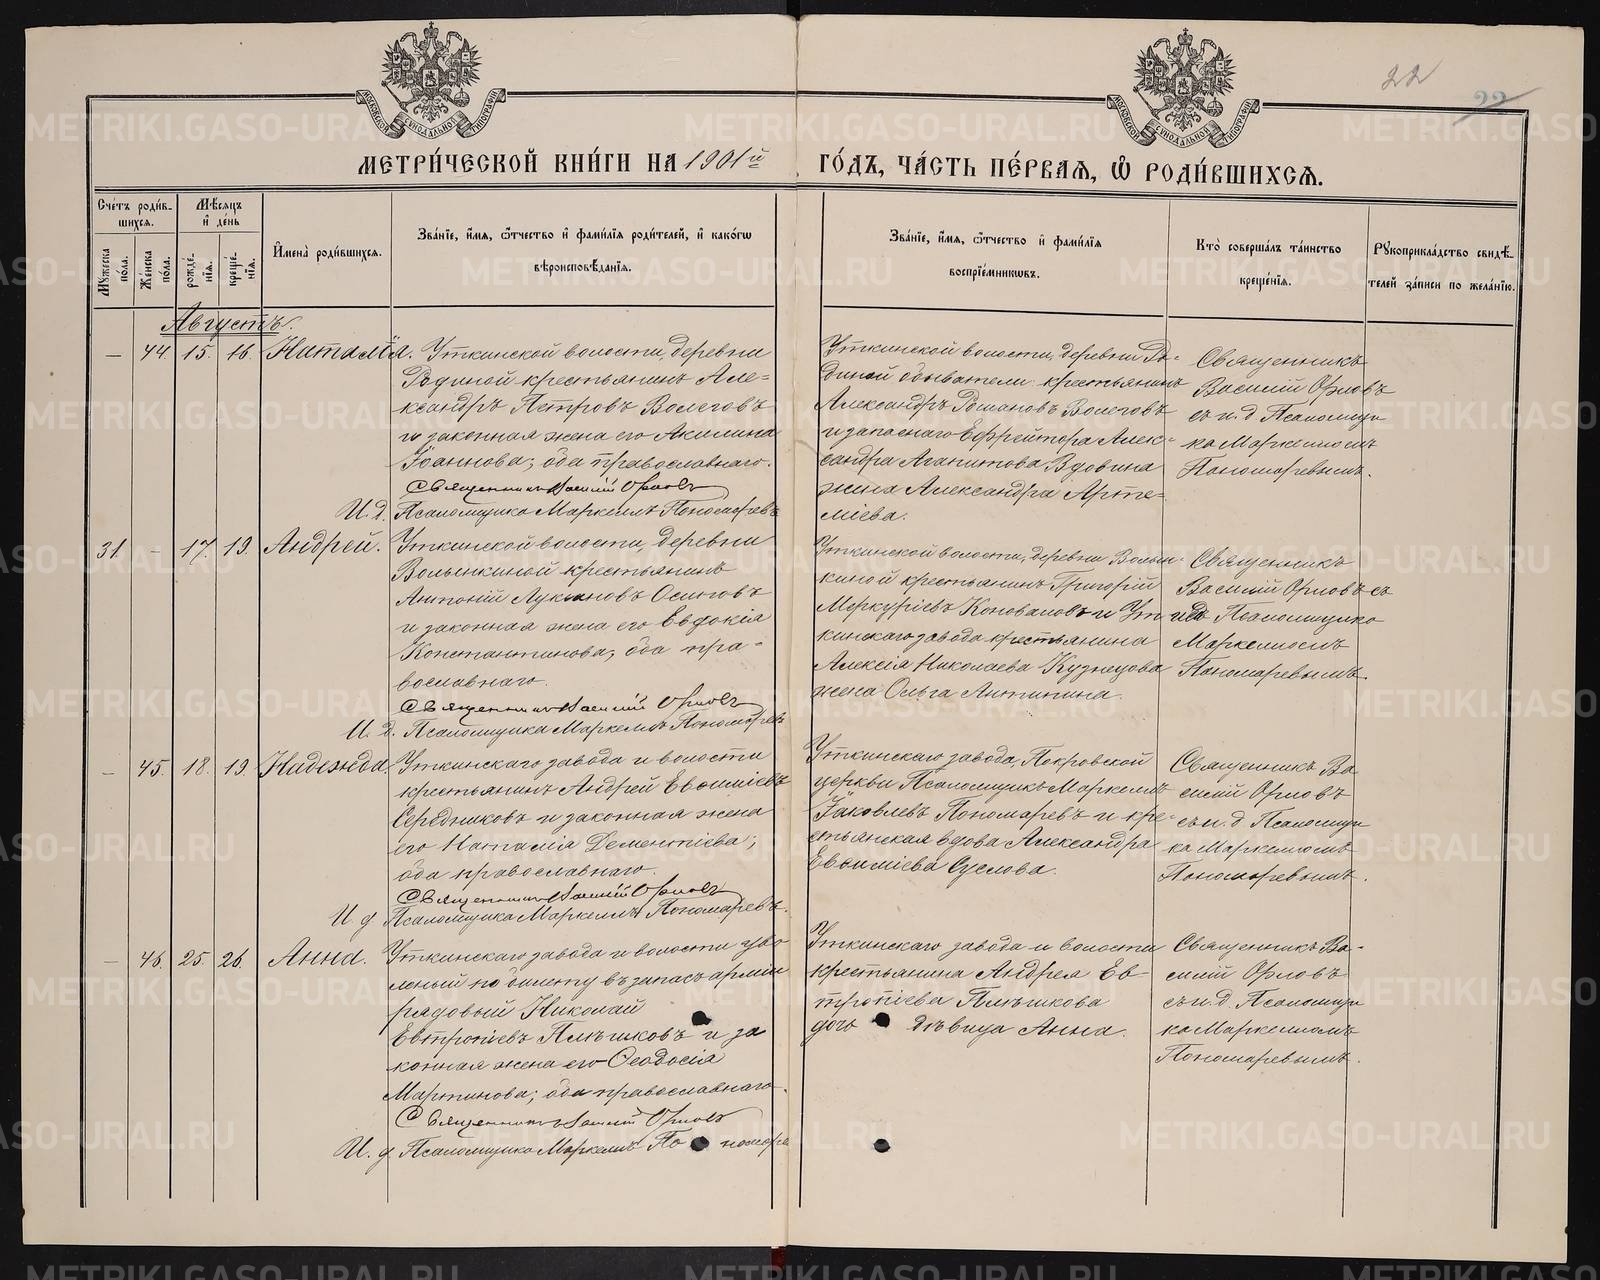 22
22
МЕТРИ́ЧЕСКОЙ КНИ́ГИ НА 1901й ГО́ДЪ, ЧА́СТЬ ПЕ́РВАЯ, Ѽ РОДИ́ВШИХСЯ.
МОСКОВСКОЙ СѴНОДАЛЬНОЙ ТИПОГРАФІИ
МОСКОВСКОЙ СѴНОДАЛЬНОЙ ТИПОГРАФІИ
Сче́тъ роди́в-
шихся.
Мѣ́сяцъ
и҆ де́нь
Мꙋ́жеска по́ла.
Же́нска по́ла.
рожде́нїя.
креще́нїя.
И҆мена̀ роди́вшихся.
Зва́нїе, и҆́мя, ѻ҆́тчество и҆ фами́лїя роди́телей, и҆ како́гѡ
вѣроисповѣ́данїя.
Зва́нїе, и҆́мя, ѻ҆́тчество и҆ фами́лїя
воспрїе́мниковъ.
Кто̀ соверша́лъ та́инство
креще́нїя.
Рꙋкоприкла́дство свидѣ́-
телей за́писи по жела́нїю.
Августъ.
— 44. 15. 16. Наталія.
Уткинской волости, деревни
Родиной крестьянинъ Але=
ксандръ Петровъ Волеговъ
и законная жена его Акилина
Іоаннова; оба православнаго.
Священникъ Василій Орловъ
И. д. Псаломщика Маркеллъ Пономаревъ
Уткинской волости, деревни Ро=
диной обыватели: крестьянинъ
Александръ Романовъ Волеговъ
и запаснаго Ефрейтора Алек=
сандра Агапитова Вдовина
жена Александра Арте=
міева.
Священникъ
Василій Орловъ
съ и. д. Псаломщи
ка Маркелломъ
Пономаревымъ.
31. — 17. 19. Андрей.
Уткинской волости, деревни
Волынкиной крестьянинъ
Антоній Лукіановъ Осиповъ
и законная жена его Евдокія
Константинова; оба пра=
вославнаго.
Священникъ Василій Орловъ
И. д. Псаломщика Маркеллъ Пономаревъ
Уткинской волости, деревни Волын
киной крестьянинъ Григорій
Меркуріевъ Коноваловъ и Ут
кинскаго завода крестьянина
Алексія Николаева Кузнецова
жена Ольга Антипина.
Священникъ
Василій Орловъ съ
и.д. Псаломщика
Маркелломъ
Пономаревымъ.
— 45. 18. 19. Надежда.
Уткинскаго завода и волости
крестьянинъ Андрей Евѳиміевъ
Середниковъ и законная жена
его Наталія Дементіева;
оба православнаго.
Священникъ Василій Орловъ
И. д. Псаломщика Маркеллъ Пономаревъ.
Уткинскаго завода, Покровской
церкви Псаломщикъ Маркеллъ
Іаковлевъ Пономаревъ и кре-
стьянская вдова Александра
Евѳиміева Суслова.
Священникъ Ва
силій Орловъ
съ и. д. Псаломщи
ка Маркелломъ
Пономаревымъ.
— 46. 25. 26. Анна.
Уткинскаго завода и волости уво
леный по билету въ запасъ арміи
рядовой Николай
Евтропіевъ Плѣшковъ и за
конная жена его Ѳеодосія
Мартинова; оба православнаго.
Священникъ Василій Орловъ
И. д. Псаломщика Маркеллъ Пономаре
Уткинскаго завода и волости
крестьянина Андрея Ев-
тропіева Плѣшкова
дочь дѣвица Анна.
Священникъ Ва-
силій Орловъ
съ и. д. Псаломщи
ка Маркелломъ
Пономаревымъ.
METRIKI.GASO-URAL.RU